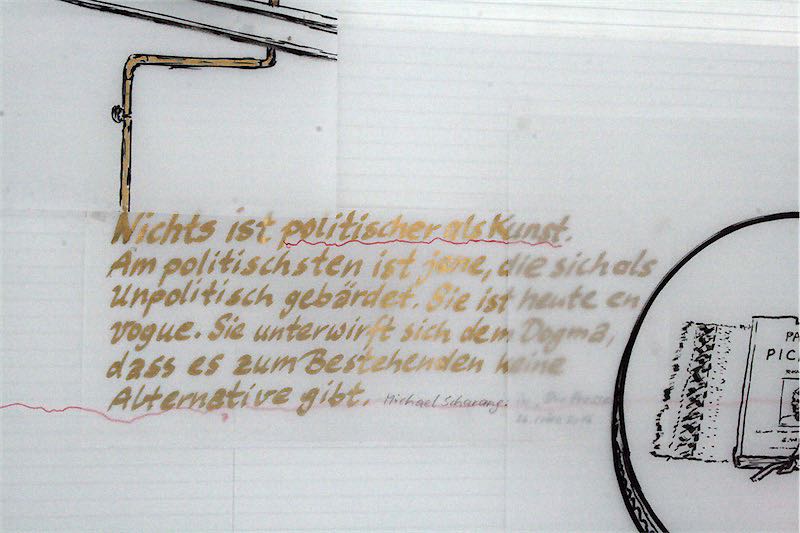 Nichts ist politischer als Kunst.
Am politischsten ist jene, die sich als
Unpolitisch gebärdet. Sie ist heute en
vogue. Sie unterwirft sich dem Dogma,
dass es zum Bestehenden keine
Alternative gibt. Michael Scharang.
in „Die Presse
PA
PIC